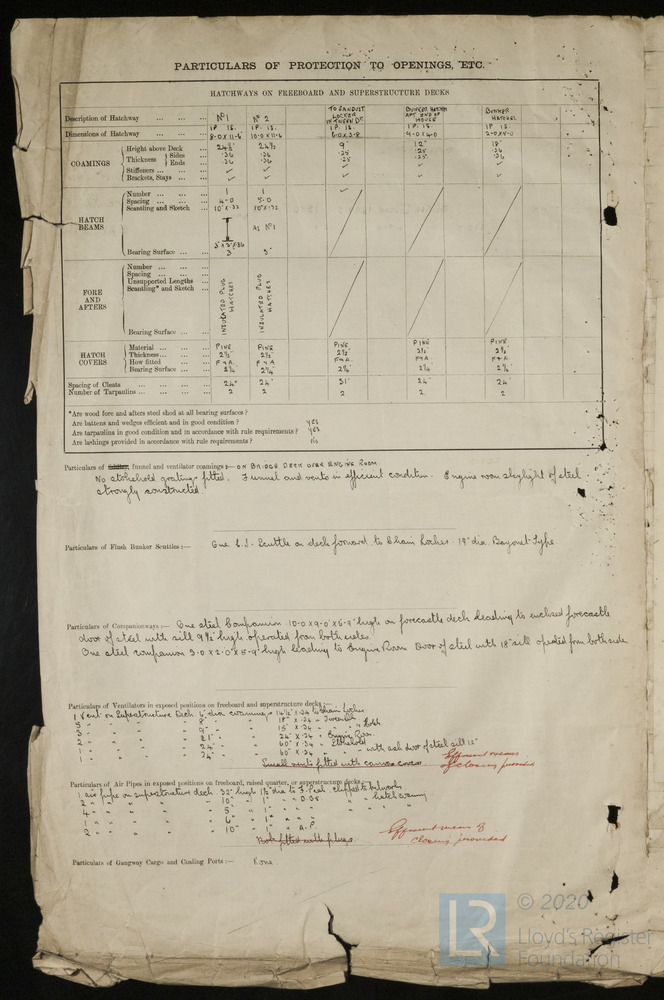 PARTICULARS OF PROTECTION TO OPENINGS, ETC.
HATCHWAYS ON FREEBOARD AND SUPERSTRUCTURE DECKS
Description of Hatchway ... ... ... No 1 No 2 TO SANDUST LOCKER IN TWEEN DK BUNKER HATCH AFT END OF HOUSE BUNKER HATCHES
Dimensions of Hatchway ... ... ... 8-0 x 11-6 10-0 x 11-6 6-0 x 3-8 9-0 x 4-0 2-0 x
COAMINGS
Height above Deck ... 24½" 24½ 9" 12" 18"
Thickness { Sides ... .36 .36 .25 .25 .36
Ends ... .36 .36 .25 .25 .36
Stiffeners ... ... ...
Brackets, Stays ... ...
HATCH BEAMS
Number ... ... ... 1 1
Spacing ... ... ... 4-0 5-0
Scantling and Sketch ... 10" x .32 10" x .32
AS No 1
5" x 3" x .36
Bearing Surface ... ... 3" 3"
FORE AND AFTERS
Number ... ... ...
Spacing ... ... ...
Unsupported Lengths ...
Scantling* and Sketch ...
INSULATED PLUG HATCHES INSULATED PLUG HATCHES
Bearing Surface ... ...
HATCH COVERS
Material ... ... ... PINE PINE PINE PINE PINE
Thickness... ... ... 2½" 2½" 2½ 2½" 2½"
How fitted ... ... F & A F & A F & A F & A F & A
Bearing Surface ... ... 2¼ 2¼ 2¼ 2¼ 2¼
Spacing of Cleats ... ... ... 24" 24" 31" 24" 24
Number of Tarpaulins ... ... ... 2 2 2 2 2
*Are wood fore and afters steel shod at all bearing surfaces?
Are battens and wedges efficient and in good condition? yes
Are tarpaulins in good condition and in accordance with rule requirements? yes
Are lashings provided in accordance with rule requirements? No
Particulars of funnel and ventilator coamings :— ON BRIDGE DECK OVER ENGINE ROOM
No stokehold gratings fitted. Funnel and vents in efficient condition. Engine room skylight of steel
strongly constructed.
Particulars of Flush Bunker Scuttles :— One C.I. Scuttle on deck forward to Chain Locker. 19" dia. Bayonet Type.
Particulars of Companionways :— One steel Companion 10-0 x 9-0 x 6-9" high on forecastle deck leading to enclosed forecastle
door of steel with sill 9½" high operated from both sides.
One steel companion 3-0 x 2-0 x 5-9" high leading to Engine Room Door of steel with 18" sill operated from both sides
Particulars of Ventilators in exposed positions on freeboard and superstructure decks :—
1 Vent on Superstructure Deck 6" dia coaming 14½" x .24 to Chain Locker
18" x .24
15" x .24 Hold
24" x .24 Engine Room
60" x .24 Stokehold
60" x .24 with ash door of steel sill 12"
Small vents fitted with canvas covers
Efficient means of closing provided
Particulars of Air Pipes in exposed positions on freeboard, raised quarter, or superstructure decks :—
1 air pipe on superstructure deck 32" high 1½" dia to F. Peak clipped to bulwark
2 " " " " 10" " 1" " D.B's " " hatch coaming
4 " " " " 5" " 1" "
1 " " " " 6" " 1" "
2 " " " " 10" " 1" " A.P.
Both fitted with plugs.
Efficient means of closing provided
Particulars of Gangway Cargo and Coaling Ports :— None.
LR
© 2020
Lloyd's Register
Foundation